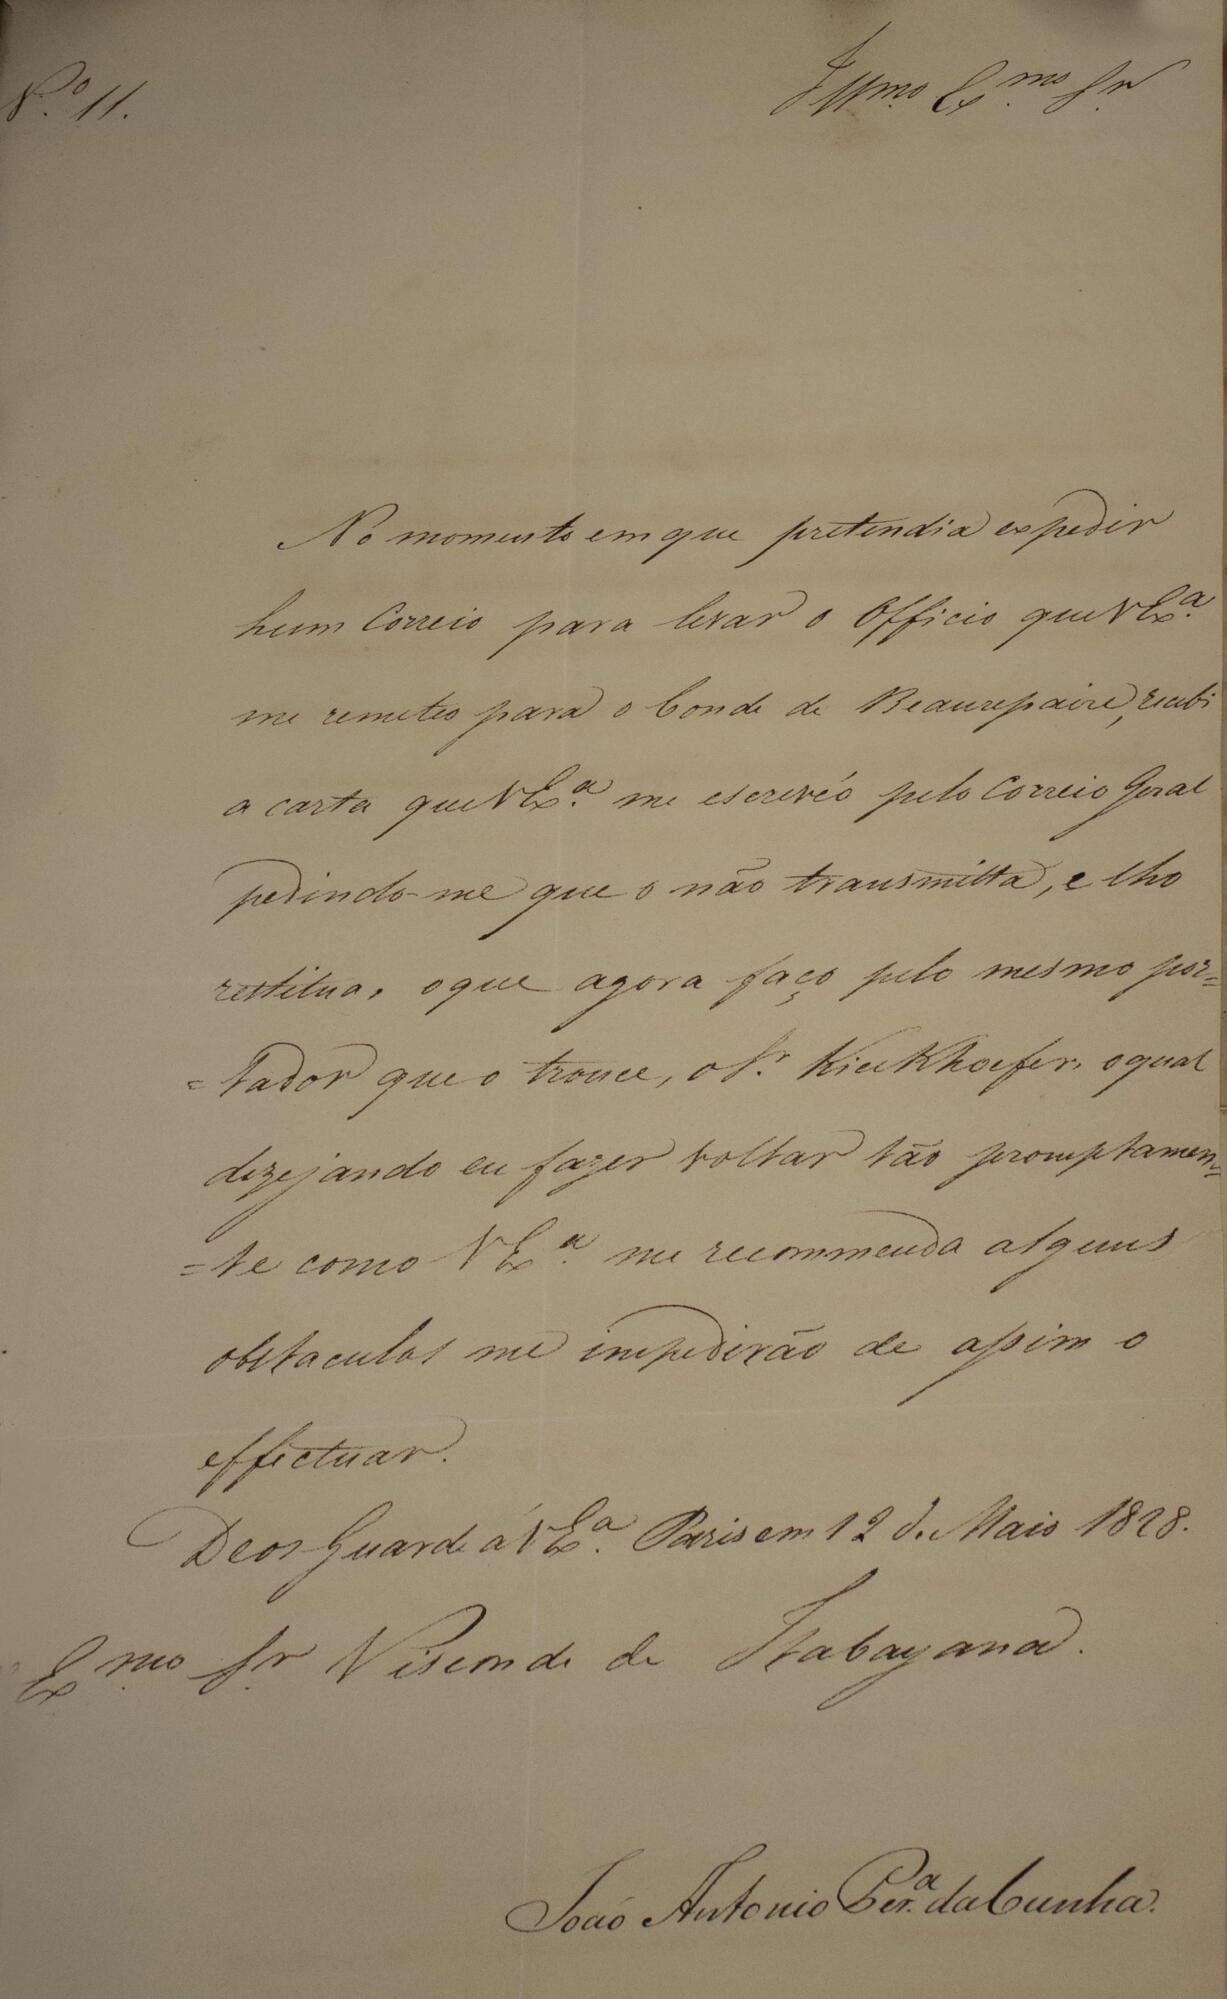 N.º 11.
Illmo. Exmo. Snr
No momento em que pretendia expedir
hum Correio para levar o Officio que V Exa.
me remeteo para o Conde de Beaurepaire, recebi
a carta que V Exa. me escrevéo pelo Correio Geral
pedindo-me que o não transmitta, e lho
restitua, o que agora faço pelo mesmo por=
=tador que o trouce, o Sr. Kieckhoefer, o qual
dezejando eu fazer voltar tão promptamen=
=te como V Exa. me recommenda alguns
obstaculos me impedirão de assim o
effectuar.
Deos Guarde á V Exa. Paris em 12 de Maio 1828.
Exmo. Snr Visconde de Itabayana.
João Antonio Pera. da Cunha.